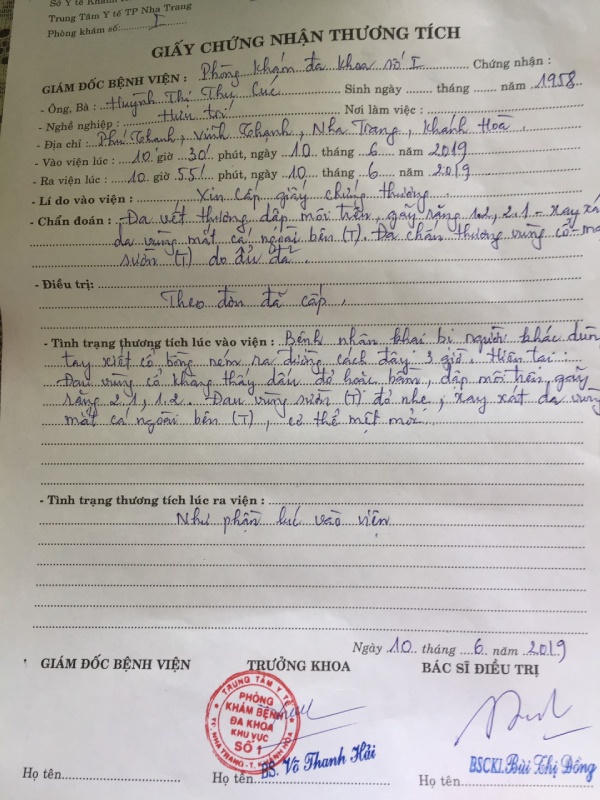 Sở Y tế Khánh
Trung Tâm Y tế TP Nha Trang
Phòng khám số: I
GIẤY CHỨNG NHẬN THƯƠNG TÍCH
GIÁM ĐỐC BỆNH VIỆN : Phòng khám đa khoa số I Chứng nhận :
- Ông, Bà : Huỳnh Thị Thu Cúc Sinh ngày ...... tháng ...... năm 1958
- Nghề nghiệp : Hưu trí Nơi làm việc :
- Địa chỉ : Phú Thạnh, Vĩnh Thạnh, Nha Trang, Khánh Hoà.
- Vào viện lúc : 10 giờ 30 phút, ngày 10 tháng 6 năm 2019
- Ra viện lúc : 10 giờ 55 phút, ngày 10 tháng 6 năm 2019
- Lí do vào viện : Xin cấp giấy chứng thương.
- Chẩn đoán : Đa vết thương dập môi trên, gãy răng 1.2, 2.1 - xay xát
da vùng mắt cá ngoài bên (T). Đa chấn thương vùng cổ - mạ
sườn (T) do đả đã.
- Điều trị:
Theo đơn đã cấp.
- Tình trạng thương tích lúc vào viện : Bệnh nhân khai bị người khác dùn
tay xiết cổ bồng ném ra đường cách đây 3 giờ. Hiện tại :
Đau vùng cổ không thấy dấu đỏ hoặc bầm, dập môi trên, gãy
răng 2.1, 1.2. Đau vùng sườn (T) đỏ nhẹ, xay xát da vùng
mắt cá ngoài bên (T), cơ thể mệt mỏi.
- Tình trạng thương tích lúc ra viện :
Như phần lúc vào viện
Ngày 10 tháng 6 năm 2019
GIÁM ĐỐC BỆNH VIỆN TRƯỞNG KHOA BÁC SĨ ĐIỀU TRỊ
TRUNG TÂM Y TẾ
PHÒNG
KHÁM BỆNH
ĐA KHOA
KHU VỰC
SỐ 1
TP. NHA TRANG - T. KHÁNH HÒA
BS. Võ Thanh Hải
BSCKI. Bùi Thị Đồng
Họ tên Họ tên Họ tên